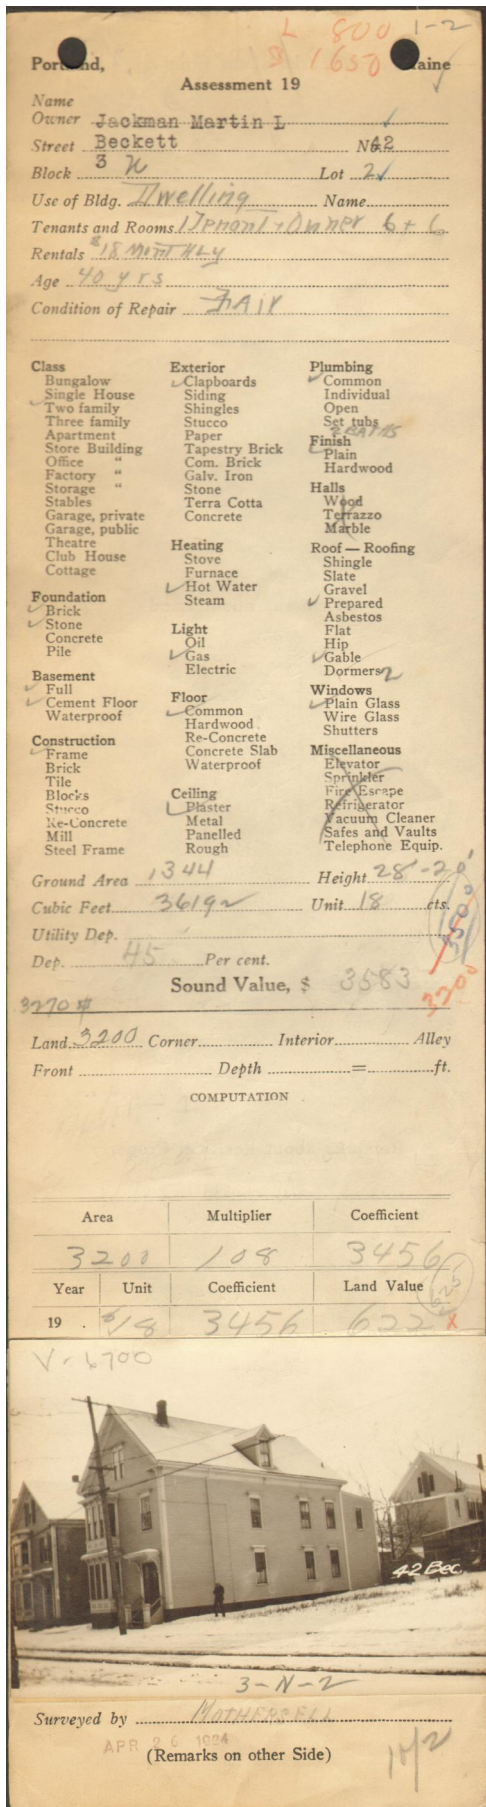 L 800 1-2
B 1650
Portland, Maine
Assessment 19
Name
Owner Jackman Martin L
Street Beckett No. 42
Block 3 N Lot 2
Use of Bldg. Dwelling Name
Tenants and Rooms 1 Tenant + Owner 6 + 6
Rentals $18 MONTHLY
Age 40 yrs
Condition of Repair FAIR
Class
Bungalow
Single House
Two family
Three family
Apartment
Store Building
Office "
Factory "
Storage "
Stables
Garage, private
Garage, public
Theatre
Club House
Cottage
Foundation
Brick
Stone
Concrete
Pile
Basement
Full
Cement Floor
Waterproof
Construction
Frame
Brick
Tile
Blocks
Stucco
Re-Concrete
Mill
Steel Frame
Exterior
Clapboards
Siding
Shingles
Stucco
Paper
Tapestry Brick
Com. Brick
Galv. Iron
Stone
Terra Cotta
Concrete
Heating
Stove
Furnace
Hot Water
Steam
Light
Oil
Gas
Electric
Floor
Common
Hardwood
Re-Concrete
Concrete Slab
Waterproof
Ceiling
Plaster
Metal
Panelled
Rough
Plumbing
Common
Individual
Open
Set tubs
2 BATHS
Finish
Plain
Hardwood
Halls
Wood
Terrazzo
Marble
Roof — Roofing
Shingle
Slate
Gravel
Prepared
Asbestos
Flat
Hip
Gable
Dormers 2
Windows
Plain Glass
Wire Glass
Shutters
Miscellaneous
Elevator
Sprinkler
Fire Escape
Refrigerator
Vacuum Cleaner
Safes and Vaults
Telephone Equip.
Ground Area 1344 Height 28'-20'
Cubic Feet 36192 Unit 18 cts.
3500
Utility Dep.
Dep. 45 Per cent.
Sound Value, $ 3583
3200
3270 #
Land 3200 Corner Interior Alley
Front Depth = ft.
COMPUTATION
Area Multiplier Coefficient
3200 108 3456
Year Unit Coefficient Land Value
625
19 . $18 3456 622 x
V-6700
42 Bec.
3-N-2
Surveyed by MOTHERSELL
APR 26 1924
(Remarks on other Side)